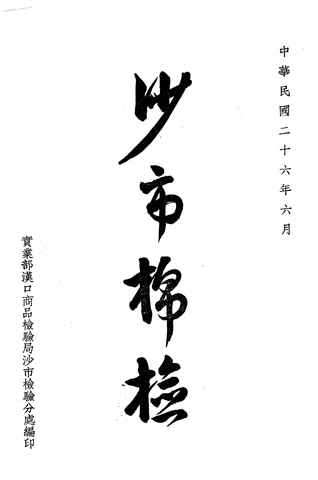 中華民國二十六年六月
沙市棉檢
實業部漢口商品檢驗局沙市檢驗分處編印